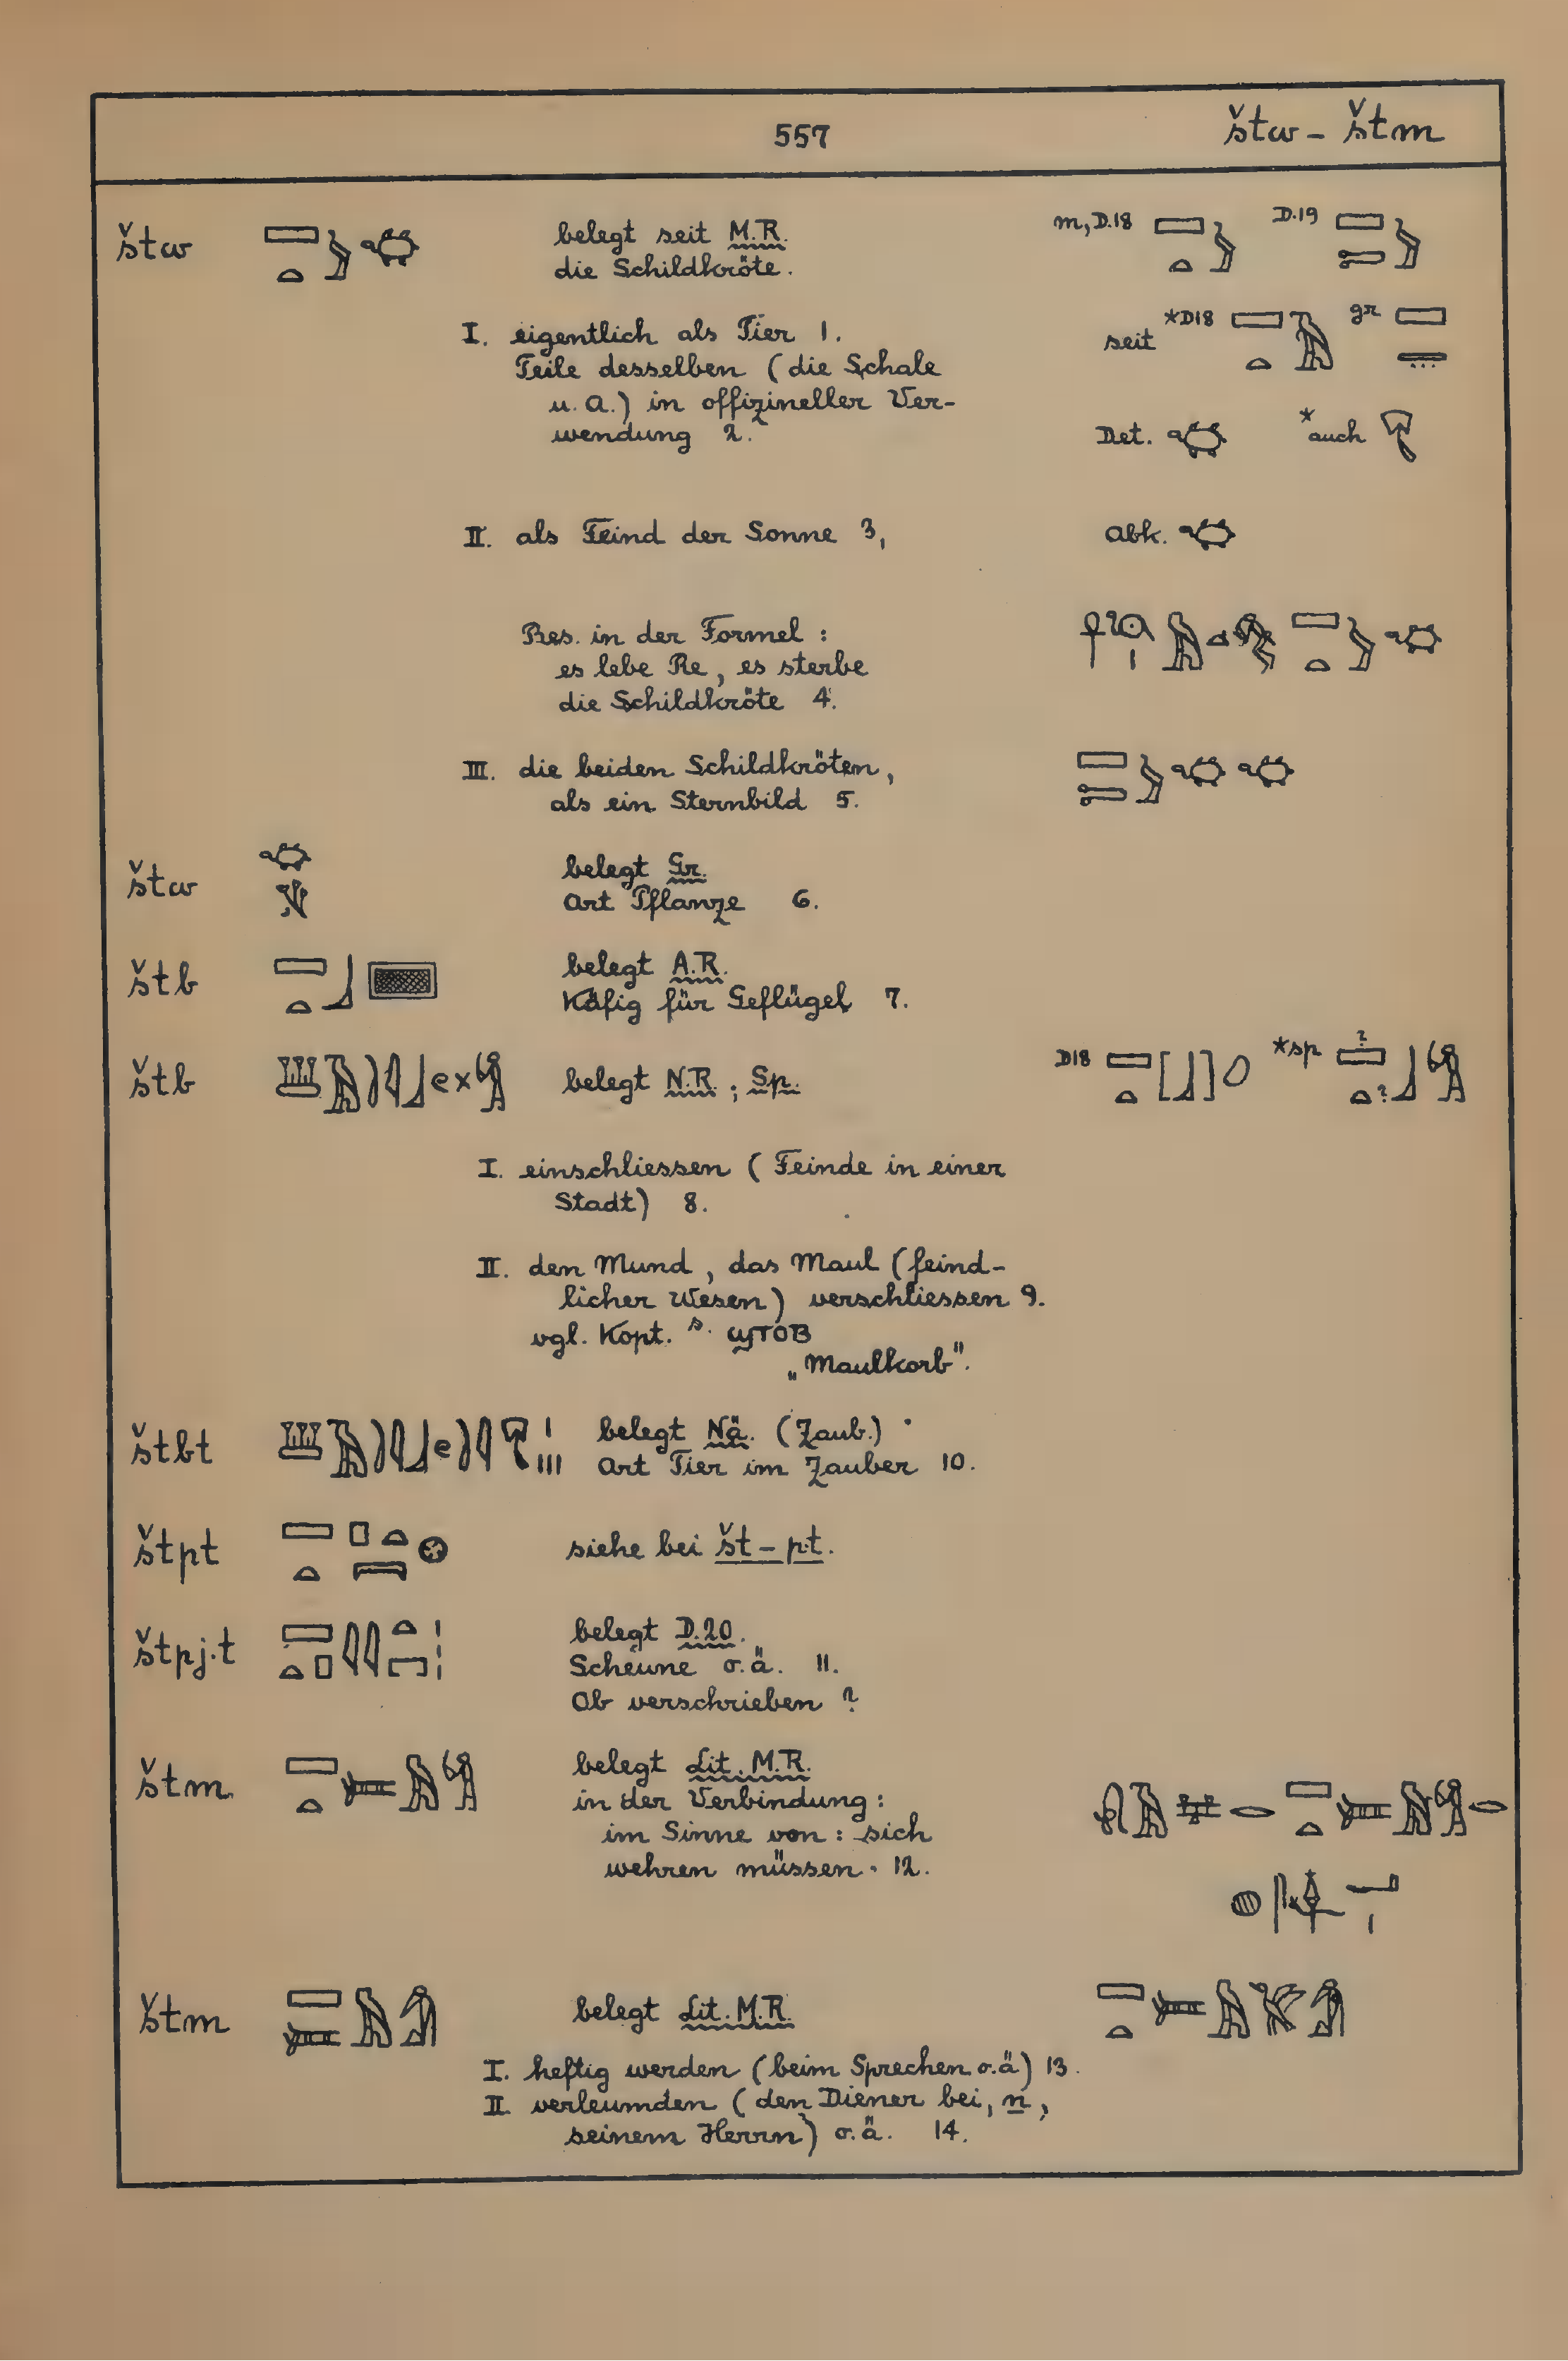 557
štw – štm
štw
belegt seit M.R.
die Schildkröte.
m, D.18
D.19
I. eigentlich als Tier 1.
Teile desselben (die Schale
u. a.) in offizineller Ver-
wendung 2.
seit *D18
gr
Det.
*auch
II. als Feind der Sonne 3,
abk.
Bes. in der Formel :
es lebe Re, es sterbe
die Schildkröte 4.
III. die beiden Schildkröten,
als ein Sternbild 5.
štw
belegt Gr.
Art Pflanze 6.
štb
belegt A.R.
Käfig für Geflügel 7.
štb
belegt N.R. ; Sp.
D18
*sp
?
?
I. einschliessen (Feinde in einer
Stadt) 8.
II. den Mund, das Maul (feind-
licher Wesen) verschliessen 9.
vgl. Kopt. s. ϣⲧⲟⲃ
„Maulkorb".
štbt
belegt Nä. (Zaub.)
Art Tier im Zauber 10.
štpt
siehe bei št – p.t.
štpj.t
belegt D.20.
Scheune o.ä. 11.
Ob verschrieben ?
štm
belegt Lit. M.R.
in der Verbindung :
im Sinne von : sich
wehren müssen. 12.
štm
belegt Lit. M.R.
I. heftig werden (beim Sprechen o.ä) 13.
II. verleumden (den Diener bei, n,
seinem Herrn) o.ä. 14.